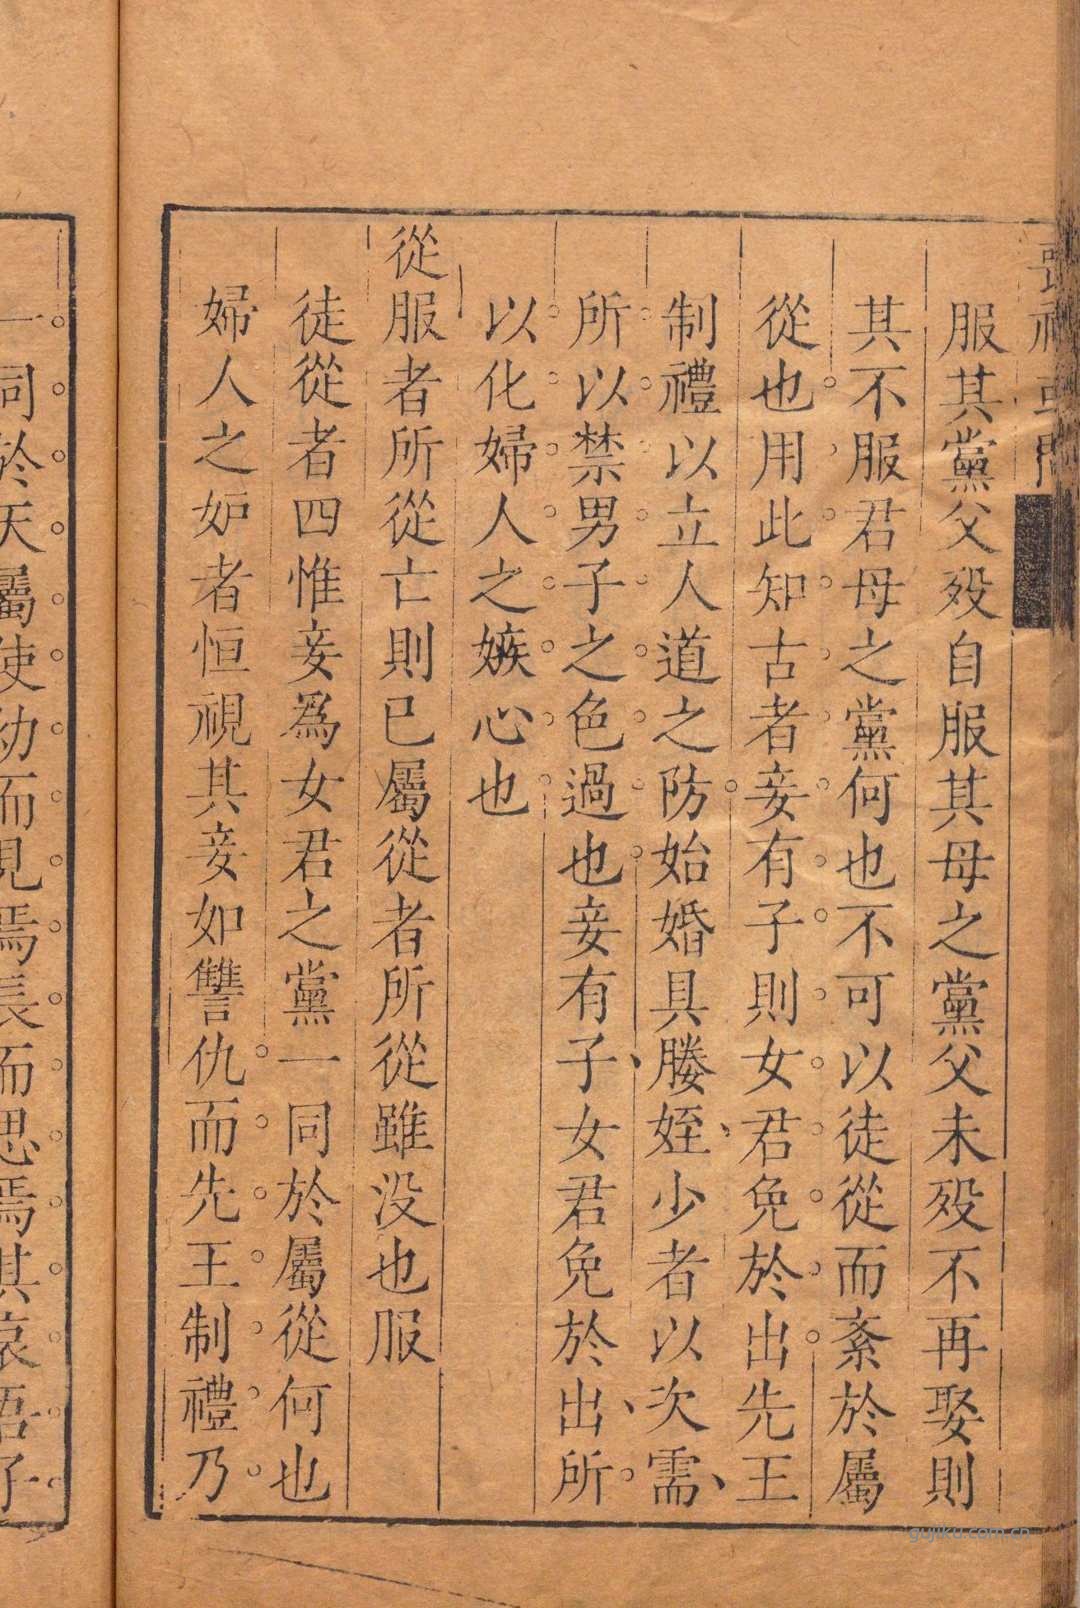 喪禮或問
服其黨父歿自服其母之黨父未歿不再娶則
其不服君母之黨何也不可以徒從而紊於屬
從也用此知古者妾有子則女君免於出先王
制禮以立人道之防始婚具媵姪少者以次需
所以禁男子之色過也妾有子女君免於出所
以化婦人之嫉心也
從服者所從亡則已屬從者所從雖没也服
徒從者四惟妾爲女君之黨一同於屬從何也
婦人之妒者恒視其妾如讐仇而先王制禮乃
一同於天屬使幼而見焉長而思焉其哀吾子
gujiku.com.cn